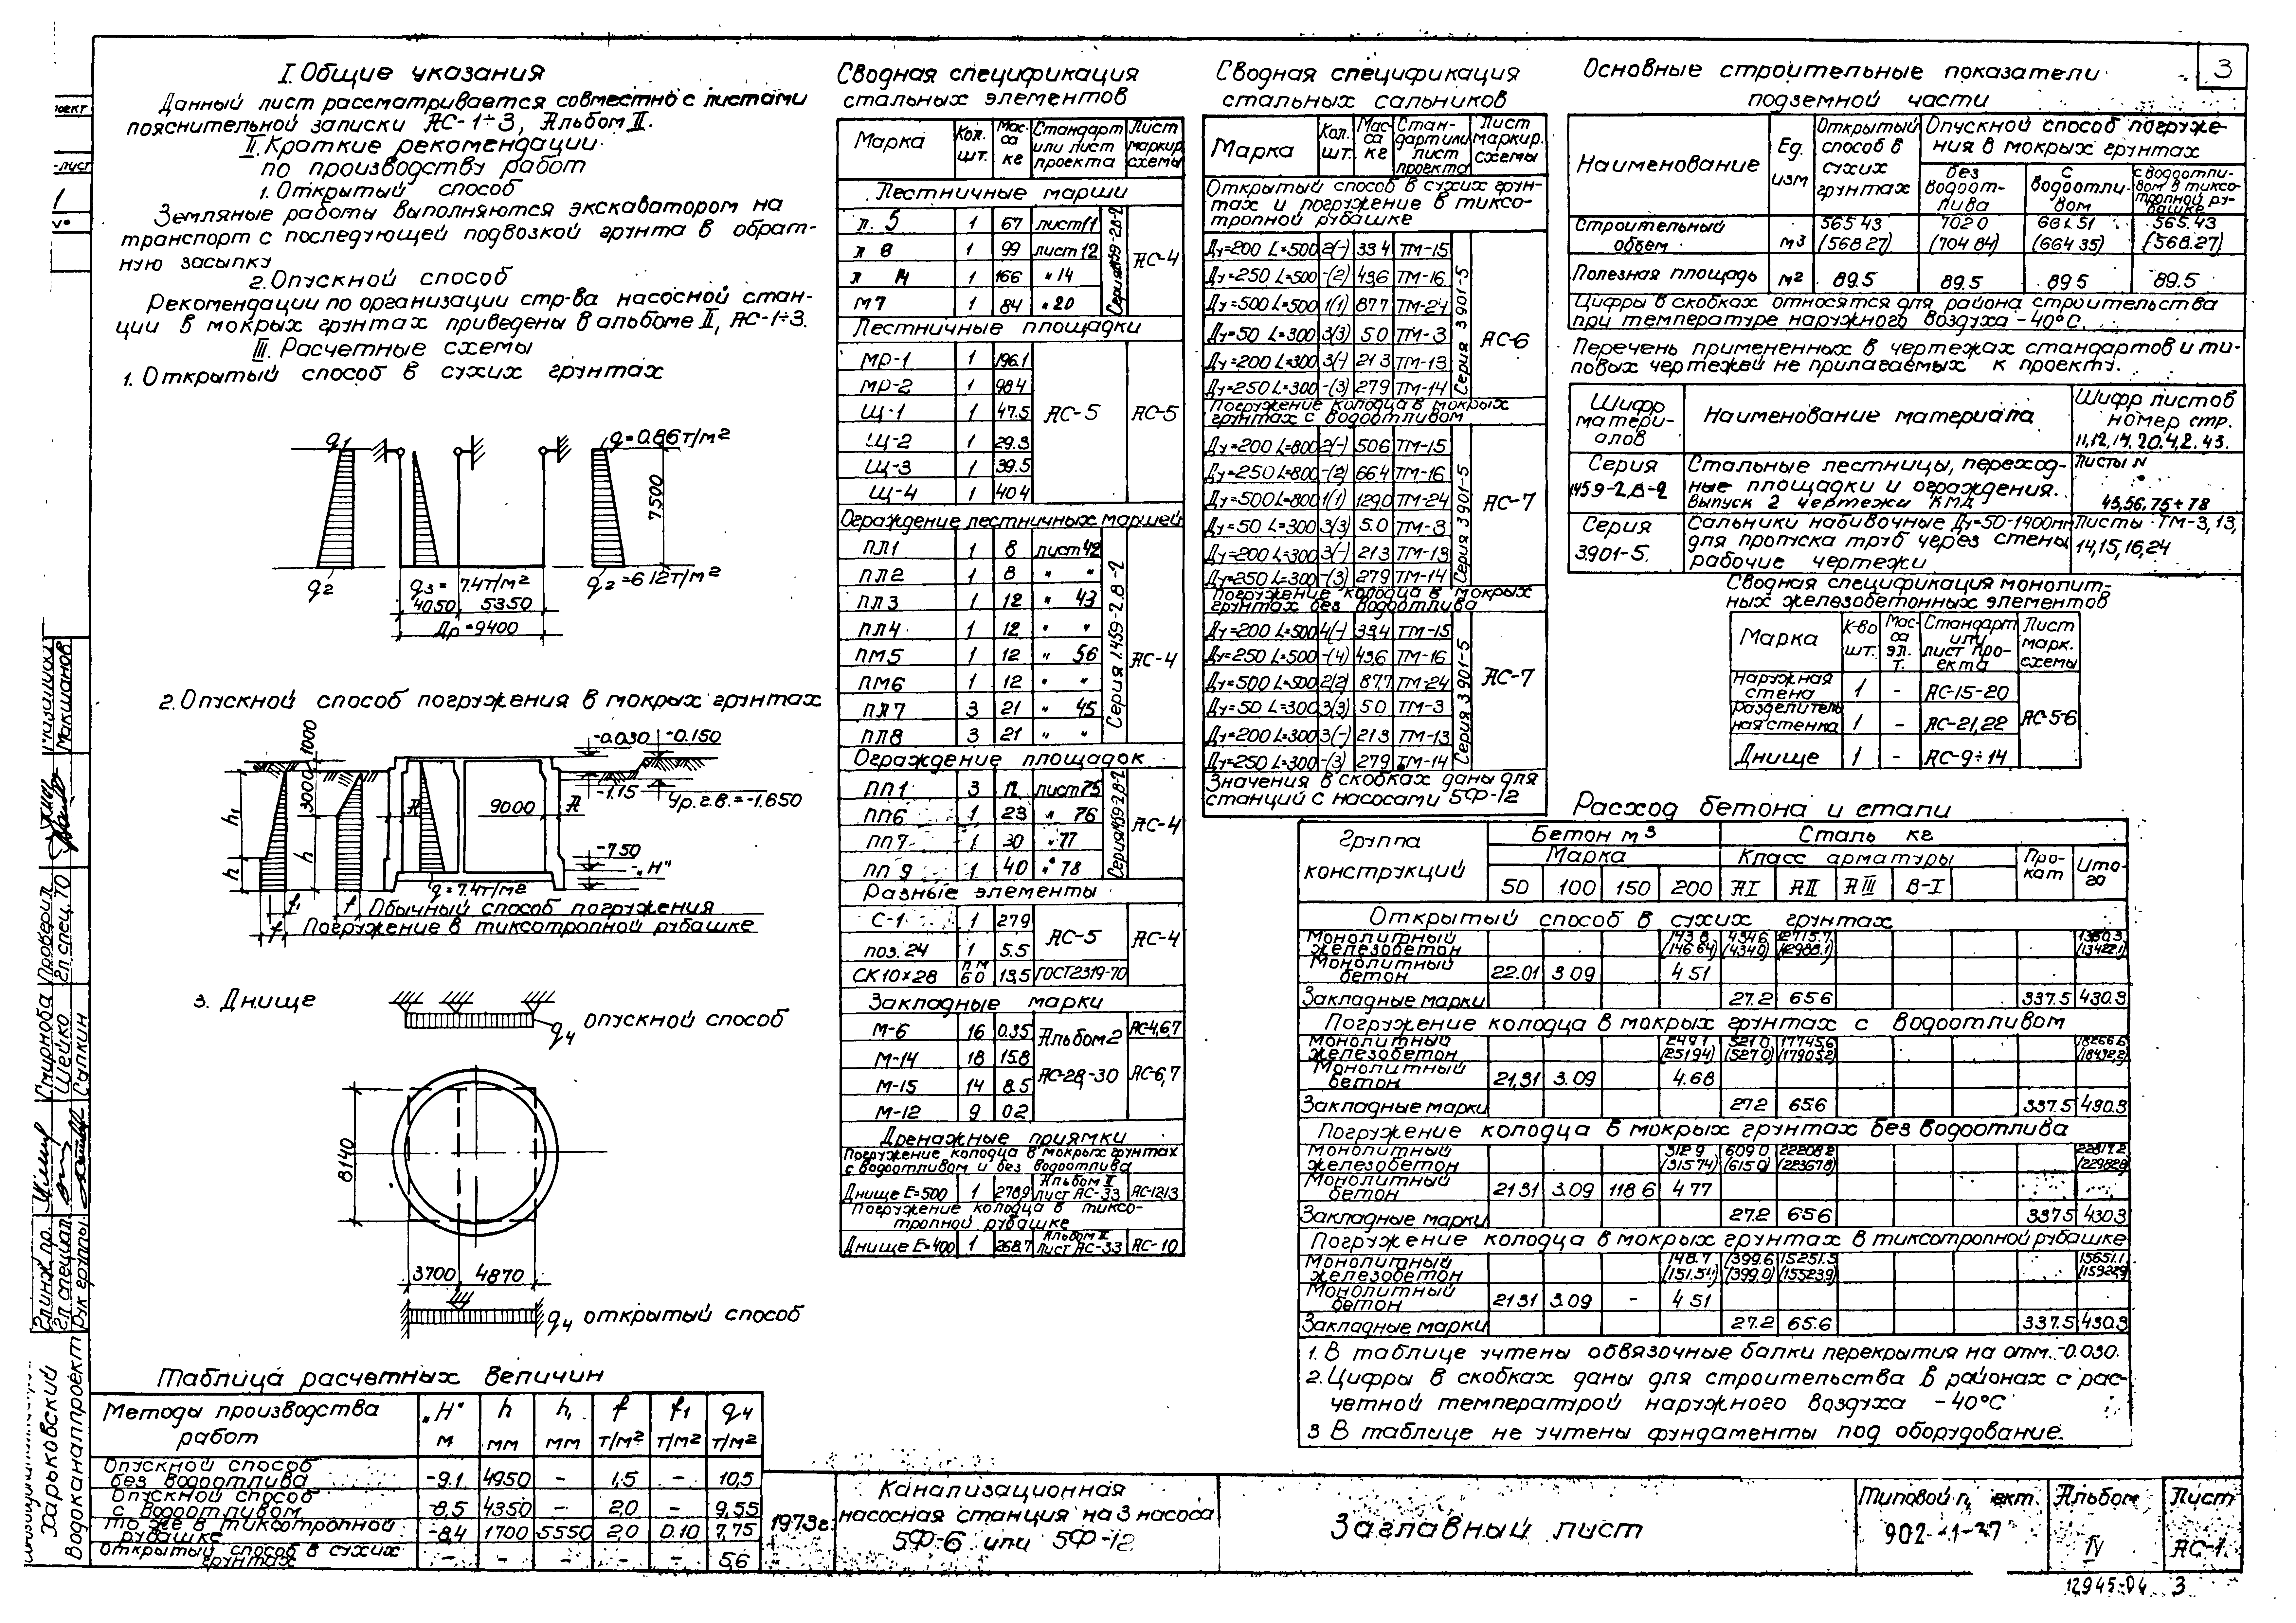 3
I. Общие указания
Данный лист рассматривается совместно с листами
пояснительной записки АС-1÷3, Альбом II.
II. Краткие рекомендации
по производству работ
1. Открытый способ
Земляные работы выполняются экскаватором на
транспорт с последующей подвозкой грунта в обрат-
ную засыпку
2. Опускной способ
Рекомендации по организации стр-ва насосной стан-
ции в мокрых грунтах приведены в альбоме II, АС-1÷3.
III. Расчетные схемы
1. Открытый способ в сухих грунтах
q1
q=0.86т/м2
7500
q2
q3=7.4т/м2
q2=6.12т/м2
4050 5350
Др=9400
2. Опускной способ погружения в мокрых грунтах
1000
3000
h1
h
h
-0.030
-0.150
-1.15
Ур.г.в.=-1.650
9000
-7.50
„Н"
q=7.4т/м2
f1
f Обычный способ погружения
f Погружение в тиксотропной рубашке
3. Днище
q4 опускной способ
8140
3700 4870
q4 открытый способ
Таблица расчетных величин
Методы производства работ „Н" м h мм h1 мм f т/м2 f1 т/м2 q4 т/м2
Опускной способ без водоотлива -9.1 4950 - 1,5 - 10,5
Опускной способ с водоотливом -8.5 4350 - 2,0 - 9,55
То же в тиксотропной рубашке -8.4 1700 5550 2,0 0.10 7,75
Открытый способ в сухих грунтах - - - - - 5,6
Сводная спецификация
стальных элементов
Марка Кол. шт. Масса кг Стандарт или лист проекта Лист маркир. схемы
Лестничные марши
Л. 5 1 67 лист 11
Л 8 1 99 лист 12
Л 14 1 166 " 14
М7 1 84 " 20
АС-4
Лестничные площадки
МР-1 1 196.1
МР-2 1 98.4
Щ-1 1 47.5 АС-5 АС-5
Щ-2 1 29.3
Щ-3 1 39.5
Щ-4 1 40.4
Ограждение лестничных маршей
ПЛ1 1 8 лист 42
ПЛ2 1 8 " "
ПЛ3 1 12 " 43
ПЛ4 1 12 " "
ПМ5 1 12 " 56
ПМ6 1 12 " "
ПЛ7 3 21 " 45
ПЛ8 3 21 " "
Серия 1.459-2.В-2
АС-4
Ограждение площадок
ПП1 3 12 лист 75
ПП6 1 23 " 76
ПП7 1 30 " 77
ПП9 1 40 " 78
АС-4
Разные элементы
С-1 1 279 АС-5 АС-4
поз. 24 1 5.5
СК10×28 пм 60 13,5 ГОСТ2319-70
Закладные марки
М-6 16 0.35 Альбом 2 АС-4,6,7
М-14 18 15.8
М-15 14 8.5 АС-28-30 АС-6,7
М-12 9 0.2
Дренажные приямки
Погружение колодца в мокрых грунтах
с водоотливом и без водоотлива
Днище Е=500 1 278,9 Альбом II лист АС-33 АС-12,13
Погружение колодца в тиксо-
тропной рубашке
Днище Е=400 1 268.7 Альбом II лист АС-33 АС-10
Сводная спецификация
стальных сальников
Марка Кол. шт. Масса кг Стандарт или лист проекта Лист маркир. схемы
Открытый способ в сухих грун-
тах и погружение в тиксо-
тропной рубашке
Ду=200 L=500 2(-) 33.4 ТМ-15
Ду=250 L=500 -(2) 43,6 ТМ-16
Ду=500 L=500 1(1) 87.7 ТМ-24
Ду=50 L=300 3(3) 5.0 ТМ-3
Ду=200 L=300 3(-) 21.3 ТМ-13
Ду=250 L=300 -(3) 27.9 ТМ-14
Серия 3.901-5
АС-6
Погружение колодца в мокрых
грунтах с водоотливом
Ду=200 L=800 2(-) 50.6 ТМ-15
Ду=250 L=800 -(2) 66.4 ТМ-16
Ду=500 L=800 1(1) 129.0 ТМ-24
Ду=50 L=300 3(3) 5.0 ТМ-3
Ду=200 L=300 3(-) 21.3 ТМ-13
Ду=250 L=300 -(3) 27.9 ТМ-14
Серия 3.901-5
АС-7
Погружение колодца в мокрых
грунтах без водоотлива
Ду=200 L=500 4(-) 33,4 ТМ-15
Ду=250 L=500 -(4) 43,6 ТМ-16
Ду=500 L=500 2(2) 87.7 ТМ-24
Ду=50 L=300 3(3) 5.0 ТМ-3
Ду=200 L=300 3(-) 21.3 ТМ-13
Ду=250 L=300 -(3) 27.9 ТМ-14
Серия 3.901-5
АС-7
Значения в скобках даны для
станций с насосами 5Ф-12
Основные строительные показатели
подземной части
Наименование Ед. изм Открытый способ в сухих грунтах Опускной способ погружения в мокрых грунтах
без водоотлива с водоотливом с водоотливом в тиксотропной рубашке
Строительный объем м3 565.43 (568.27) 702.0 (704.84) 661.51 (664.35) 565.43 (568.27)
Полезная площадь м2 89.5 89.5 89.5 89.5
Цифры в скобках относятся для района строительства
при температуре наружного воздуха -40°С.
Перечень примененных в чертежах стандартов и ти-
повых чертежей не прилагаемых к проекту.
Шифр материалов Наименование материала Шифр листов номер стр.
11,12,14,20,42,43.
Серия 1459-2,В-2 Стальные лестницы, переход- Листы N
ные площадки и ограждения.
Выпуск 2 чертежи КМД 45,56,75÷78
Серия 3.901-5. Сальники набивочные Ду=50-1400мм Листы ТМ-3,13,
для пропуска труб через стены 14,15,16,24
рабочие чертежи
Сводная спецификация монолит-
ных железобетонных элементов
Марка К-во шт. Масса эл. т. Стандарт или лист проекта Лист марк. схемы
Наружная стена 1 - АС-15-20
Разделительная стенка 1 - АС-21,22 АС-5-6
Днище 1 - АС-9÷14
Расход бетона и стали
Группа конструкций Бетон м3 Сталь кг
Марка Класс арматуры Прокат Итого
50 100 150 200 АI АII АIII В-I
Открытый способ в сухих грунтах
Монолитный железобетон 143.8 (146.64) 434.6 (434.0) 12715.7 (12988.1)
Монолитный бетон 22.01 3.09 4.51
Закладные марки 27.2 65.6 337.5 430.3
Погружение колодца в мокрых грунтах с водоотливом
Монолитный железобетон 249.1 (251.94) 521.0 (527.0) 17745.6 (17905.2) 18266.6 (18432.2)
Монолитный бетон 21,31 3.09 4.68
Закладные марки 27.2 65.6 337.5 430.3
Погружение колодца в мокрых грунтах без водоотлива
Монолитный железобетон 312.9 (315.74) 609.0 (615.0) 22208.2 (22367.8) 22817.2 (22982.8)
Монолитный бетон 21.31 3.09 118.6 4.77
Закладные марки 27.2 65.6 337.5 430.3
Погружение колодца в мокрых грунтах в тиксотропной рубашке
Монолитный железобетон 148.7 (151.54) 399.6 (399.0) 15251.5 (15523.9) 15651.1 (15922.9)
Монолитный бетон 21.31 3.09 - 4.51
Закладные марки 27.2 65.6 337.5 430.3
1. В таблице учтены обвязочные балки перекрытия на отм. -0.030.
2. Цифры в скобках даны для строительства в районах с рас-
четной температурой наружного воздуха -40°С
3 В таблице не учтены фундаменты под оборудование.
1973г.
Канализационная
насосная станция на 3 насоса
5Ф-6 или 5Ф-12
Заглавный лист
Альбом
IV
Лист
АС-1.
12945-04 3
Харьковский
Водоканалпроект
Гл.инж.пр.
Гл.специал.
Рук.группы
Смирнова
Шейко
Салкин
Проверил
Гл.спец.ТО
Макшанов